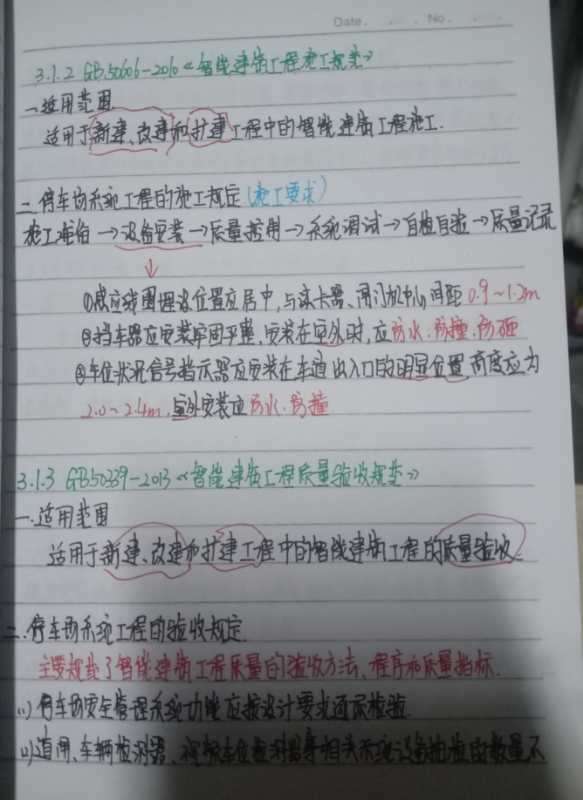 Date. No.
3.1.2 GB50606-2010《智能建筑工程施工规范》
一.适用范围
适用于新建、改建和扩建工程中的智能建筑工程施工.
二.停车场系统工程的施工规定(施工要求)
施工准备→设备安装→质量控制→系统调试→自检自验→质量记录
①感应线圈埋设位置应居中,与读卡器、闸门机中心间距0.9~1.2m
②挡车器应安装牢固平整,安装在室外时,应防水.防撞.防砸
③车位状况信号指示器应安装在车道出入口的明显位置,高度应为
2.0~2.4m,室外安装应防水.防撞
3.1.3 GB50339-2013《智能建筑工程质量验收规范》
一.适用范围
适用于新建、改建和扩建工程中的智能建筑工程的质量验收.
二.停车场系统工程的验收规定.
主要规范了智能建筑工程质量的验收方法、程序和质量指标.
(1)停车场安全管理系统功能应按设计要求逐项检验.
(2)道闸、车辆检测器、视频车位检测器等相关系统设备抽检的数量不